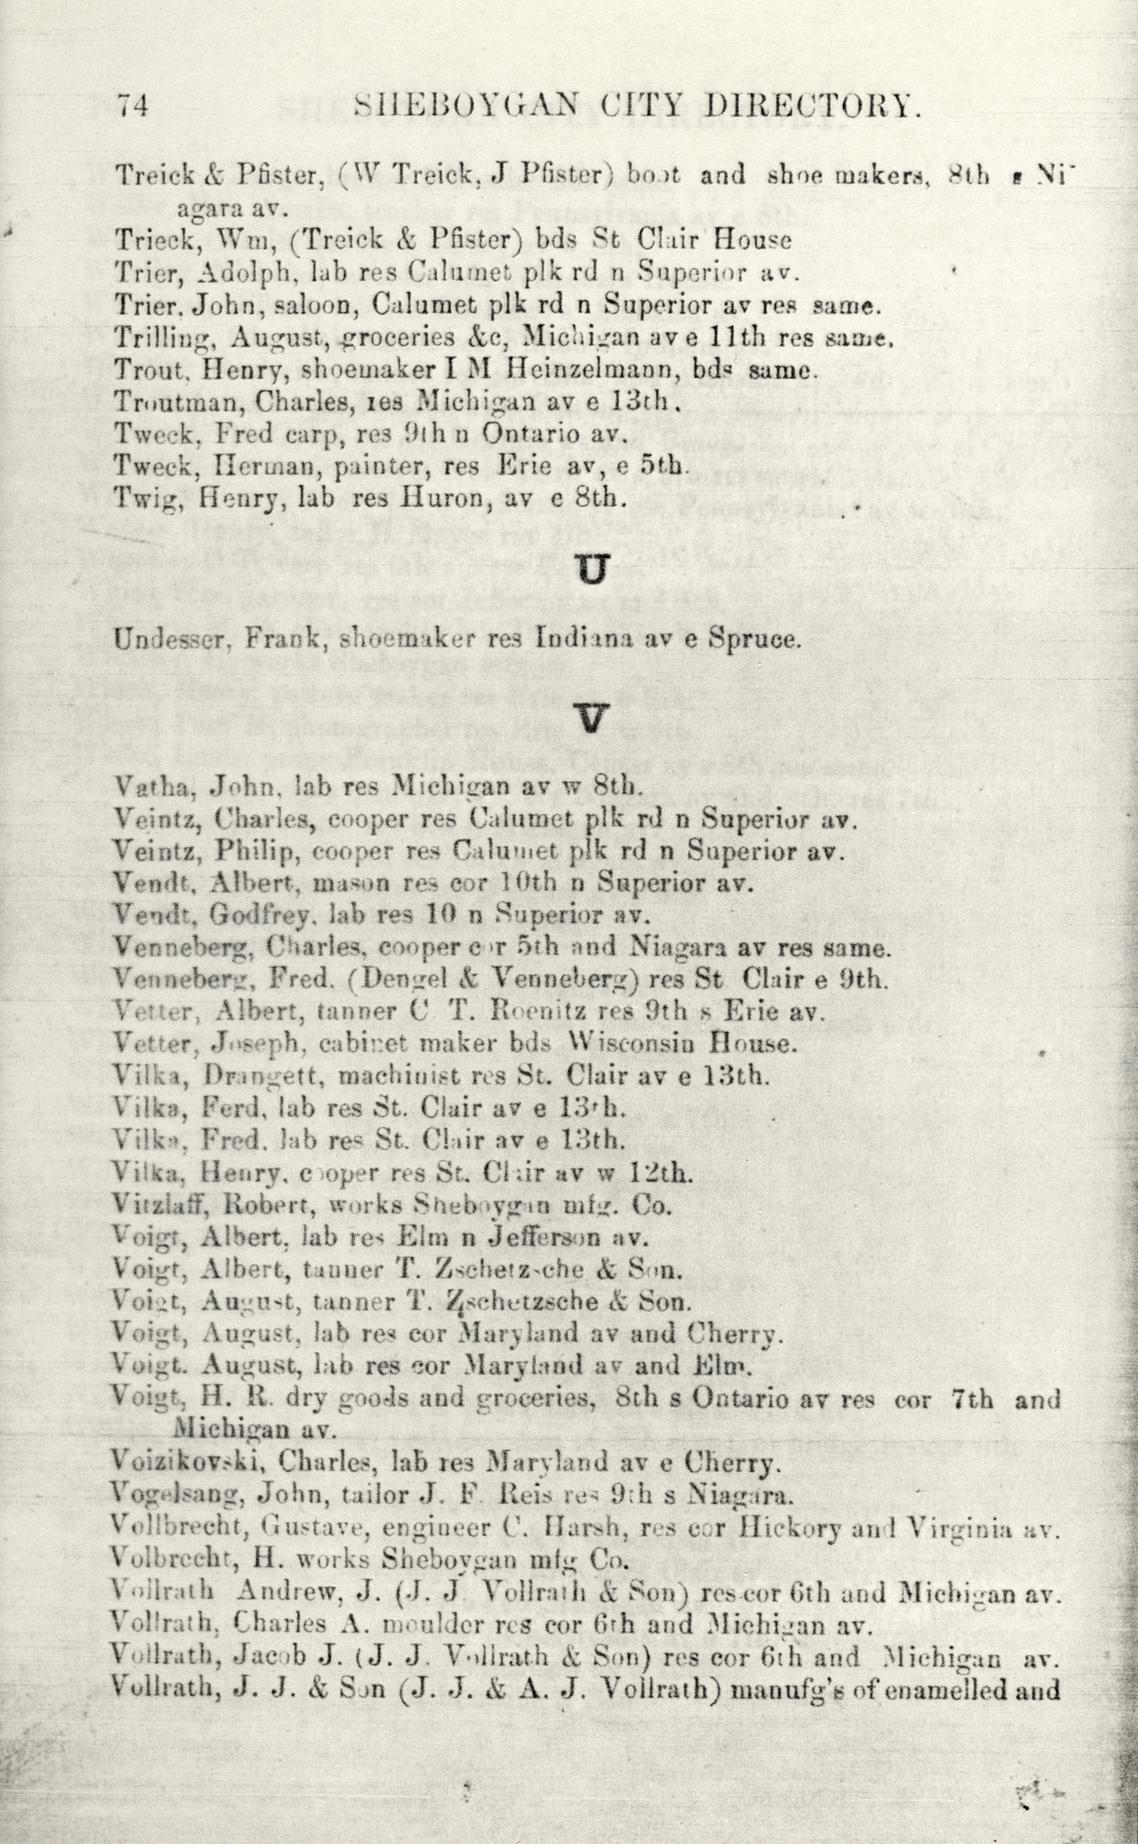 74 SHEBOYGAN CITY DIRECTORY.
Treick & Pfister, (W Treick, J Pfister) boot and shoe makers, 8th s Ni-
agara av.
Trieck, Wm, (Treick & Pfister) bds St Clair House
Trier, Adolph, lab res Calumet plk rd n Superior av.
Trier, John, saloon, Calumet plk rd n Superior av res same.
Trilling, August, groceries &c, Michigan av e 11th res same.
Trout, Henry, shoemaker I M Heinzelmann, bds same.
Troutman, Charles, res Michigan av e 13th.
Tweck, Fred carp, res 9th n Ontario av.
Tweck, Herman, painter, res Erie av, e 5th.
Twig, Henry, lab res Huron, av e 8th.
U
Undesser, Frank, shoemaker res Indiana av e Spruce.
V
Vatha, John, lab res Michigan av w 8th.
Veintz, Charles, cooper res Calumet plk rd n Superior av.
Veintz, Philip, cooper res Calumet plk rd n Superior av.
Vendt, Albert, mason res cor 10th n Superior av.
Vendt, Godfrey, lab res 10 n Superior av.
Venneberg, Charles, cooper cor 5th and Niagara av res same.
Venneberg, Fred. (Dengel & Venneberg) res St Clair e 9th.
Vetter, Albert, tanner C T. Roenitz res 9th s Erie av.
Vetter, Joseph, cabinet maker bds Wisconsin House.
Vilka, Drangett, machinist res St. Clair av e 13th.
Vilka, Ferd, lab res St. Clair av e 13th.
Vilka, Fred. lab res St. Clair av e 13th.
Vilka, Henry, cooper res St. Clair av w 12th.
Vitzlaff, Robert, works Sheboygan mfg. Co.
Voigt, Albert, lab res Elm n Jefferson av.
Voigt, Albert, tanner T. Zschetzsche & Son.
Voigt, August, tanner T. Zschetzsche & Son.
Voigt, August, lab res cor Maryland av and Cherry.
Voigt. August, lab res cor Maryland av and Elm.
Voigt, H. R. dry goods and groceries, 8th s Ontario av res cor 7th and
Michigan av.
Voizikovski, Charles, lab res Maryland av e Cherry.
Vogelsang, John, tailor J. F. Reis res 9th s Niagara.
Vollbrecht, Gustave, engineer C. Harsh, res cor Hickory and Virginia av.
Volbrecht, H. works Sheboygan mfg Co.
Vollrath Andrew, J. (J. J Vollrath & Son) res cor 6th and Michigan av.
Vollrath, Charles A. moulder res cor 6th and Michigan av.
Vollrath, Jacob J. (J. J. Vollrath & Son) res cor 6th and Michigan av.
Vollrath, J. J. & Son (J. J. & A. J. Vollrath) manufg's of enamelled and